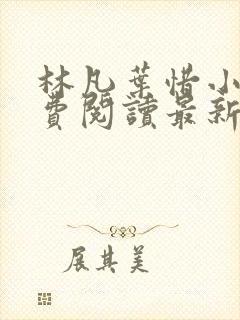 林凡葉惜小
費閱讀最新
展其美